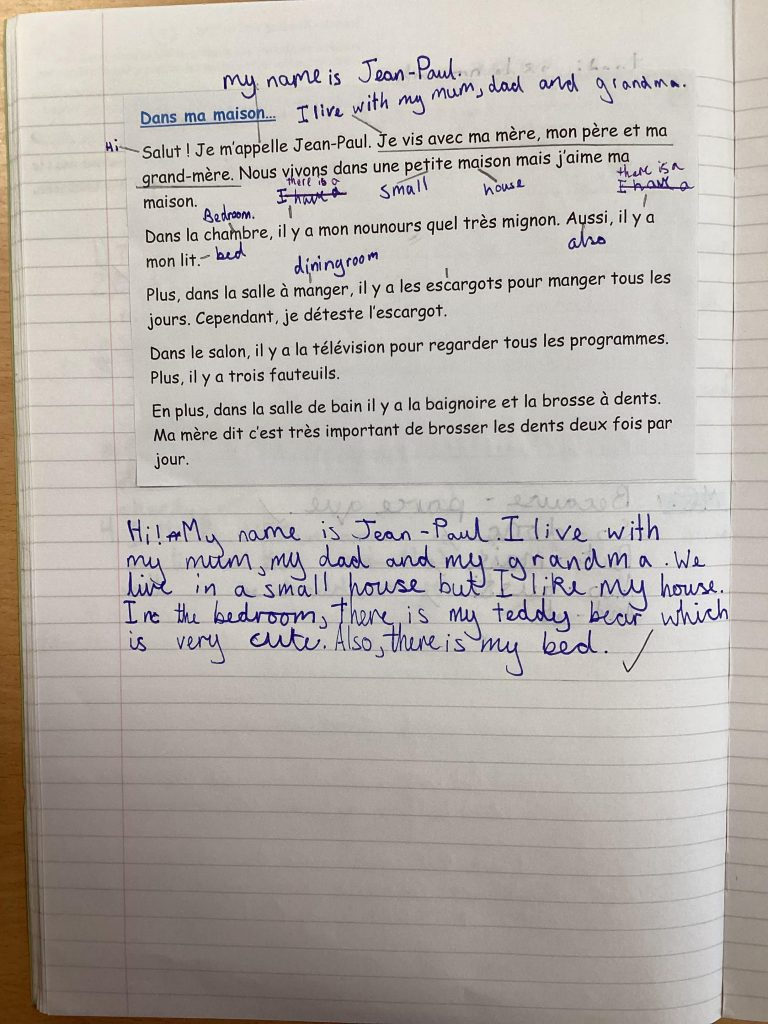 my name is Jean-Paul.
I live with my mum, dad and grandma.
Dans ma maison...
Hi
Salut ! Je m'appelle Jean-Paul. Je vis avec ma mère, mon père et ma
grand-mère. Nous vivons dans une petite maison mais j'aime ma
there is a
I have a
small
house
there is a
I have a
maison.
Bedroom.
Dans la chambre, il y a mon nounours quel très mignon. Aussi, il y a
also
mon lit. - bed
diningroom
Plus, dans la salle à manger, il y a les escargots pour manger tous les
jours. Cependant, je déteste l'escargot.
Dans le salon, il y a la télévision pour regarder tous les programmes.
Plus, il y a trois fauteuils.
En plus, dans la salle de bain il y a la baignoire et la brosse à dents.
Ma mère dit c'est très important de brosser les dents deux fois par
jour.
Because - parce que
Hi! My name is Jean-Paul. I live with
my mum, my dad and my grandma. We
live in a small house but I like my house.
In the bedroom, there is my teddy bear which
is very cute. Also, there is my bed.